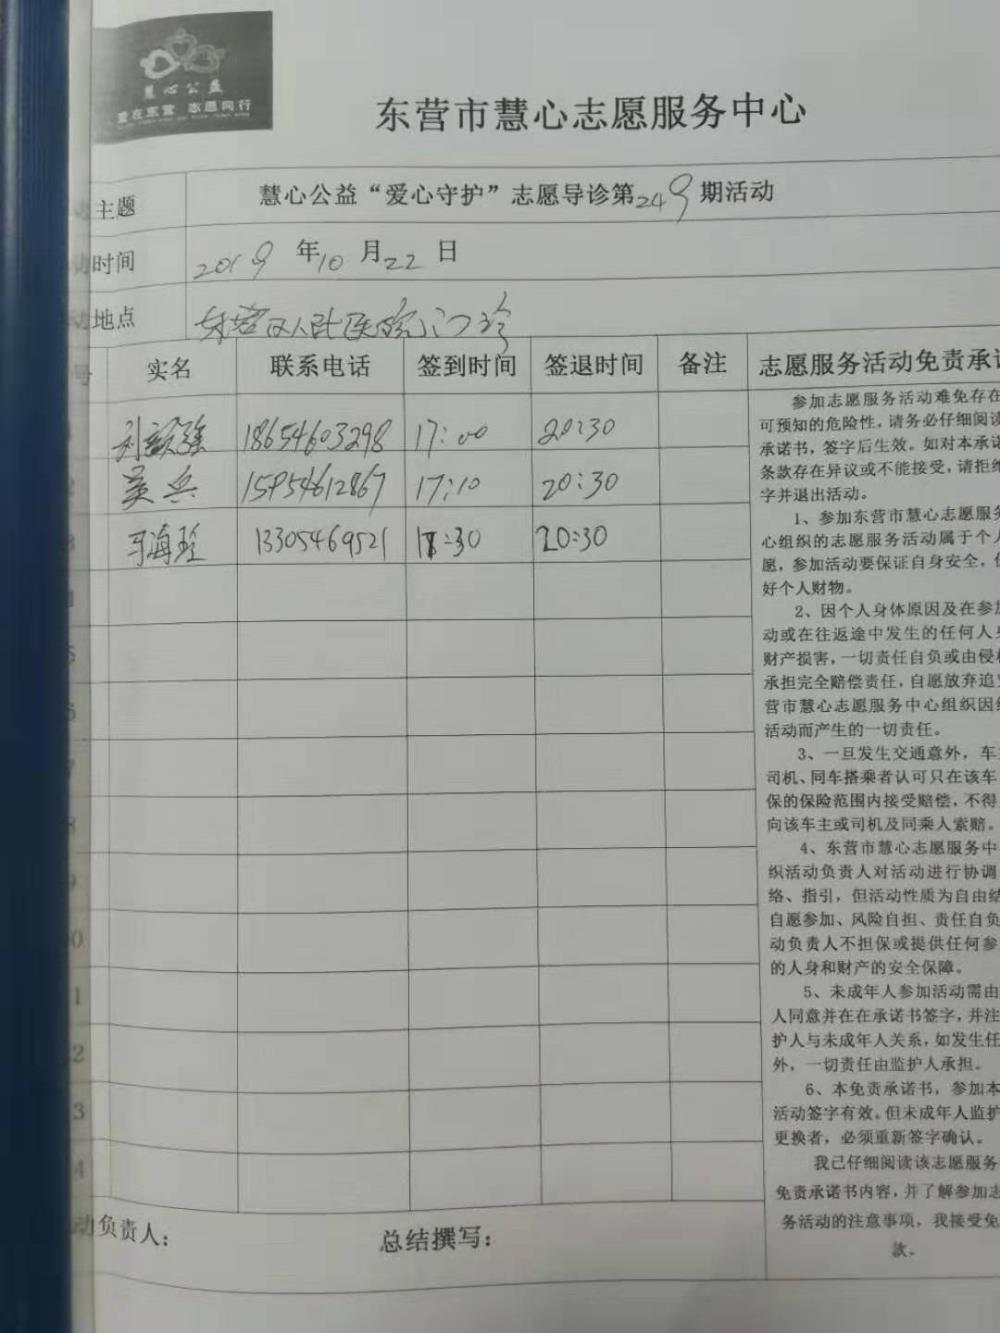 慧心公益
爱在东营 志愿同行
东营市慧心志愿服务中心
主题 慧心公益“爱心守护”志愿导诊第249期活动
时间 2019年10月22日
地点 东营区人民医院门诊
号 实名 联系电话 签到时间 签退时间 备注 志愿服务活动免责承诺
18654603298 17:00 20:30
2 吴兵 15954612867 17:10 20:30
3 马海玲 13305469521 18:30 20:30
4
5
6
7
8
9
10
1
2
3
4
参加志愿服务活动难免存在
可预知的危险性，请务必仔细阅读
承诺书，签字后生效。如对本承诺
条款存在异议或不能接受，请拒绝
字并退出活动。
1、参加东营市慧心志愿服务
心组织的志愿服务活动属于个人
愿，参加活动要保证自身安全，保
好个人财物。
2、因个人身体原因及在参加
动或在往返途中发生的任何人身
财产损害，一切责任自负或由侵权
承担完全赔偿责任，自愿放弃追究
营市慧心志愿服务中心组织因组
活动而产生的一切责任。
3、一旦发生交通意外，车主
司机、同车搭乘者认可只在该车
保的保险范围内接受赔偿，不得
向该车主或司机及同乘人索赔。
4、东营市慧心志愿服务中
织活动负责人对活动进行协调
络、指引，但活动性质为自由结
自愿参加、风险自担、责任自负
动负责人不担保或提供任何参
的人身和财产的安全保障。
5、未成年人参加活动需由
人同意并在在承诺书签字，并注
护人与未成年人关系，如发生任
外，一切责任由监护人承担。
6、本免责承诺书，参加本
活动签字有效。但未成年人监护
更换者，必须重新签字确认。
我已仔细阅读该志愿服务
免责承诺书内容，并了解参加志
务活动的注意事项，我接受免
款。
动负责人： 总结撰写：